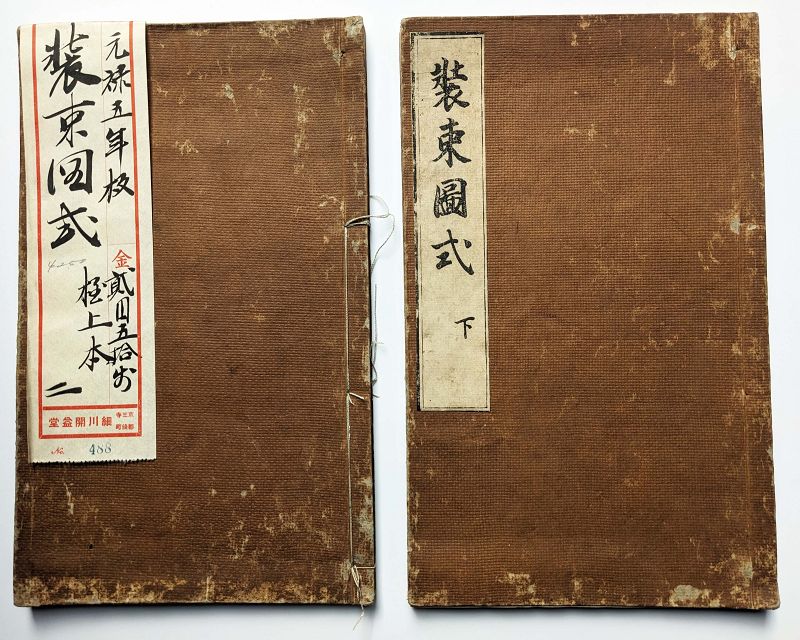 元禄五年板
装束図式
金貳円五拾銭
極上本
二
京都三條寺町
細川開益堂
No. 488
裝束圖式
下